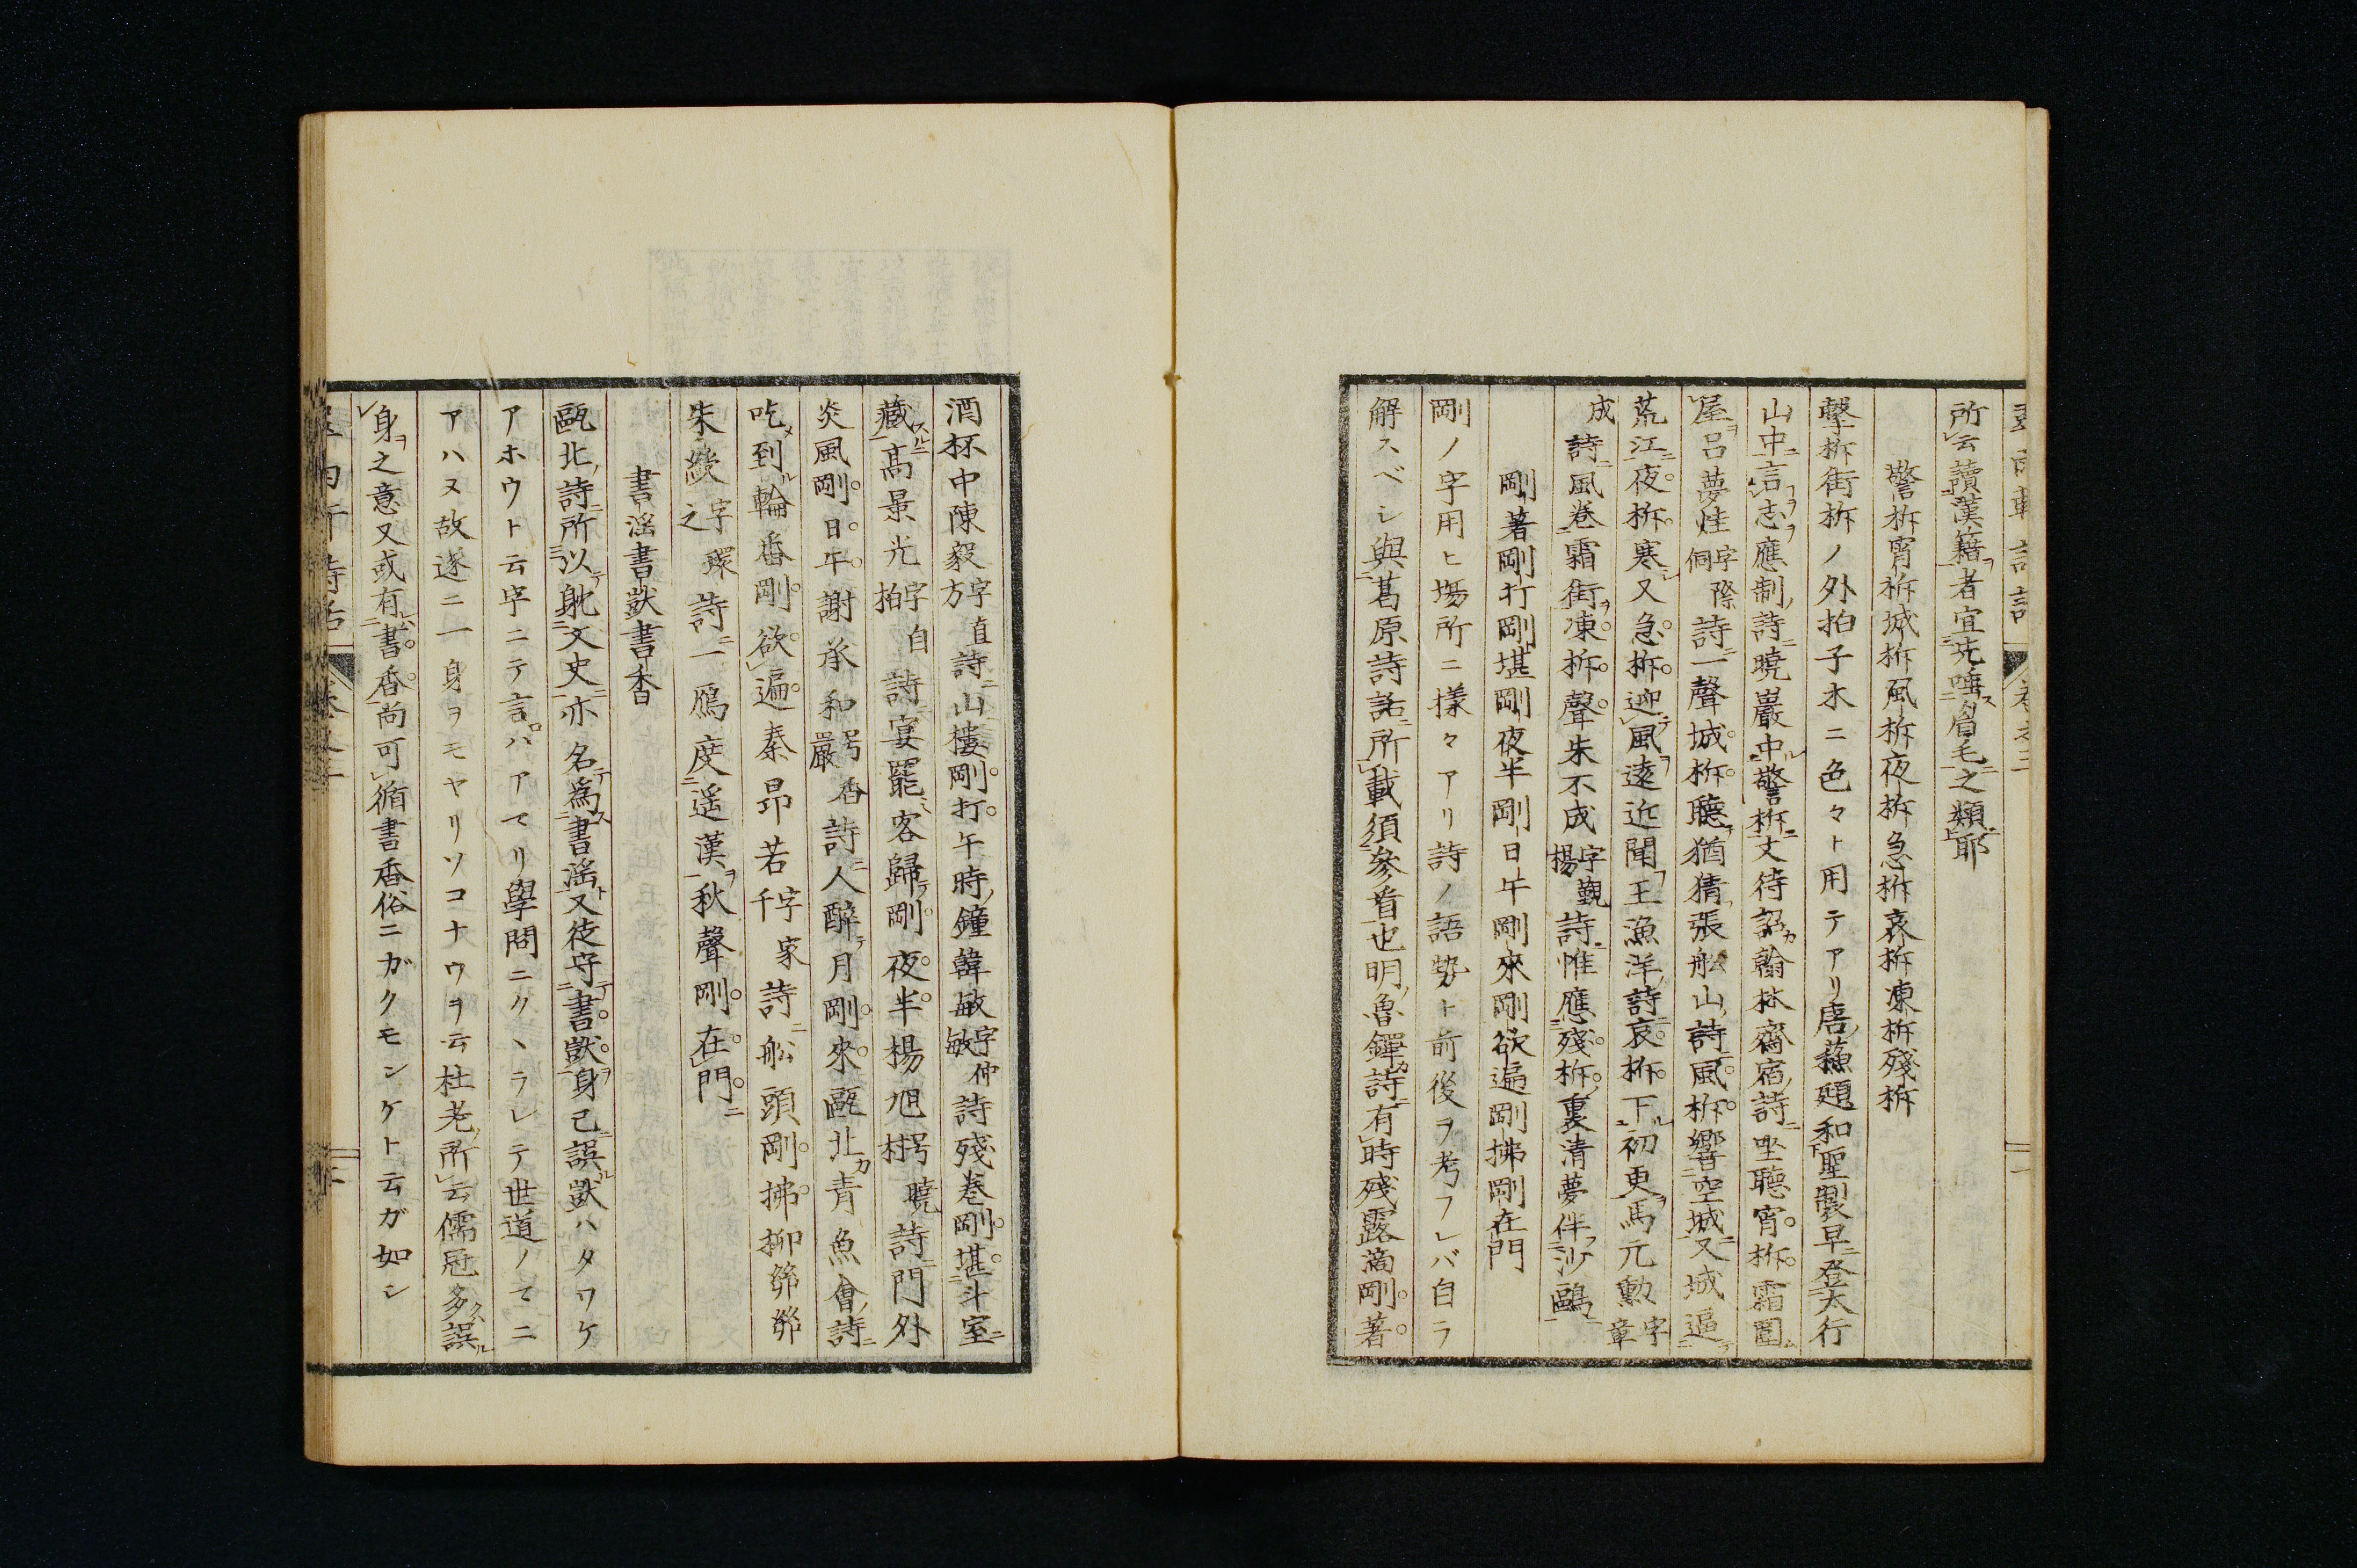 所云讀漢籍者宜先唾眉毛之類耶
警柝宵柝城柝風柝夜柝急柝哀柝凍柝殘柝
擊柝街柝ノ外拍子木ニ色々ト用テアリ唐蘇頲和聖製早登太行
山中言志應制詩ニ曉巖中警柝丈待詔翰林齋宿詩ニ坐聽宵柝霜圍
屋呂夢炷字際侗詩ニ一聲城柝聽猶猜張船山詩風柝響空城又城逼
荒江夜柝寒又急柝迎風遠近聞王漁洋詩哀柝下初更馬元勳字章
成詩ニ風卷霜街凍柝聲朱不成字觀楊詩惟應殘柝裏清夢伴沙鷗
剛著剛打剛堪剛夜半剛日午剛來剛欲遍剛拂剛在門
剛ノ字用ヒ場所ニ樣々アリ詩ノ語勢ト前後ヲ考フレバ自ラ
解スベシ與葛原詩話所載須參看也明魯鐸詩ニ有時殘露滴剛著
酒杯中陳毅字直方詩ニ山樓剛打午時鐘韓敏字仲敏詩殘卷剛堪斗室
藏高景光字白拍詩ニ宴罷客歸剛夜半楊旭号曉村詩ニ門外
炎風剛日午謝承和号香巖詩ニ人醉月剛來甌北青魚會詩ニ
吃到輪番剛欲遍秦昂若字家千詩ニ船頭剛拂柳
朱綬字環之詩ニ一鴈度遥漢秋聲剛在門
書淫書獃書香
甌北詩ニ所以耽文史亦名為書淫又徒守書獃身己誤獃ハタワケ
アホウト云字ニテ言ハアマリ學問ニクヽラレテ世道ノマニ
アハヌ故遂ニ一身ヲモヤリソコナウヲ云杜老所云儒冠多誤
身之意又或有書香尚可循書香俗ニガクモンケト云ガ如シ